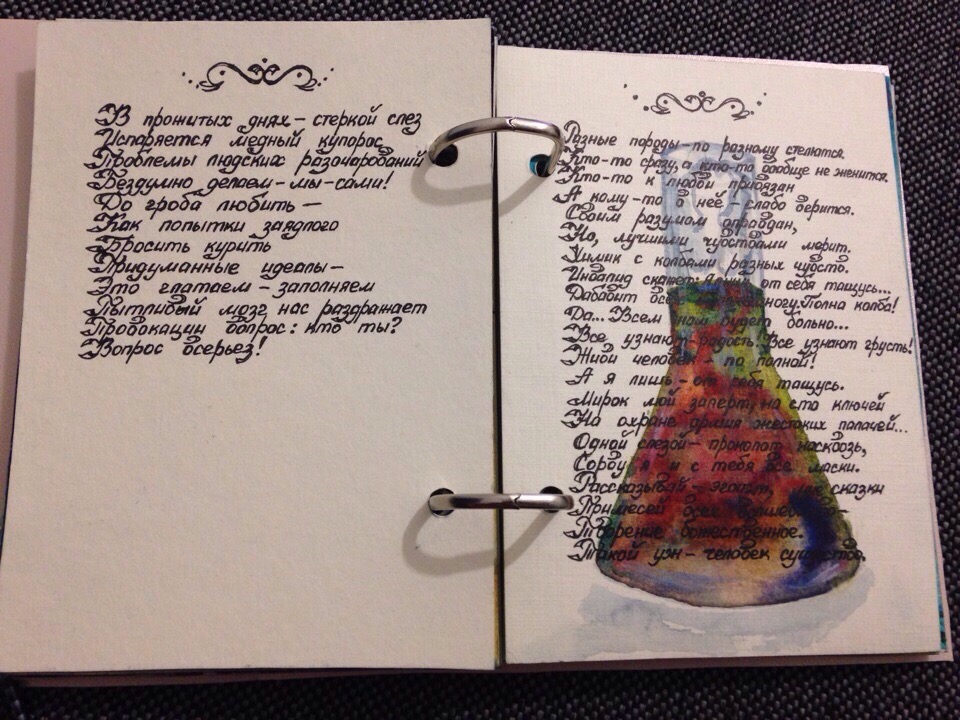 В прожитых днях – стеркой слез
Испаряется медный купорос
Проблемы людских разочарований
Бездумно делаем – мы – сами!
До гроба любить –
Как попытки заядлого
Бросить курить
Придуманные идеалы –
Это глатаем – заполняем
Пытливый мозг нас раздражает
Провокации вопрос: кто ты?
Вопрос всерьез!
Разные породы – по разному стелются.
Кто-то сразу, а кто-то вообще не женится.
Кто-то к любви привязан
А кому-то в неё – слабо верится.
Своим разумом оправдан,
Но, лучшими чувствами мерит.
Химик с колбами разных чувств.
Инвалид скажет: от себя тащусь...
Дававит все Полна колба!
Да... Всем нам будет больно...
Все узнают – радость! Все узнают грусть!
Живи человек – по полной!
А я лишь – от себя тащусь.
Мирок мой заперт, на сто ключей
На охране армия жестоких палачей...
Одной слезой – проколот насквозь,
Сорву я и с тебя все маски.
Рассказывай – эгоист, сказки
Примесей всех
Творение божественное.
Такой уж – человек существо.